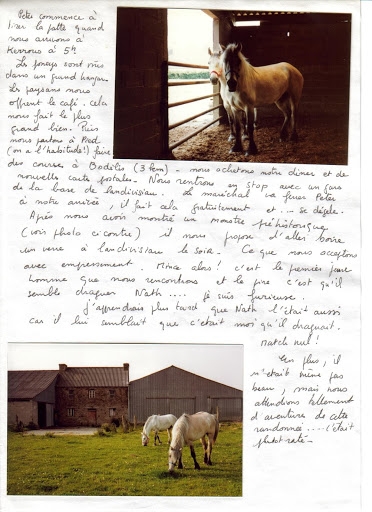 Peter commence à
tirer la patte quand
nous arrivons à
Kerrous à 5h
Les poneys sont mis
dans un grand hangar.
Les paysans nous
offrent le café. cela
nous fait le plus
grand bien. Puis
nous partons à Pied
(on a l'habitude!) faire
des courses à Bodilis (3 km) - nous achetons notre dîner et de
nouvelles cartes postales. Nous rentrons en stop avec un gars
de la base de landivisiau. Le maréchal va ferrer Peter
à notre arrivée, il fait cela gratuitement et ... se dégèle.
Après nous avoir montré un monstre préhistorique
(voir photo ci contre) il nous propose d'aller boire
un verre à landivisiau le soir. Ce que nous acceptons
avec empressement. Mince alors! c'est le premier jeune
homme que nous rencontrons et le pire c'est qu'il
semble draguer Nath .... je suis furieuse.
J'apprendrai plus tard que Nath l'était aussi
car il lui semblait que c'était moi qu'il draguait.
match nul!
En plus, il
n'était même pas
beau, mais nous
attendions tellement
d'aventures de cette
randonnée .... c'était
plutôt raté -